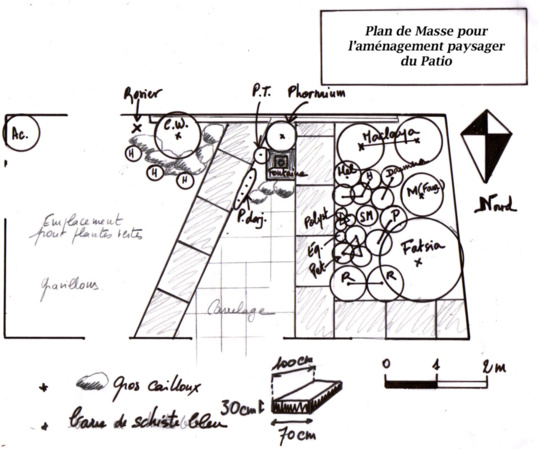 Plan de Masse pour
l'aménagement paysager
du Patio
Rosier
P.T.
Phormium
Ac.
C.W.
Macleaya
H
H
H
fontaine
Hel
H
M(Fug)
Nord
P. darj.
Polyst
SM
P
Emplacement
pour plantes vertes
Eq.
Fatsia
Pet
Gravillons
R
R
Carrelage
0 1 2m
* gros cailloux
100cm
30cm
70cm
* Barre de schiste bleu